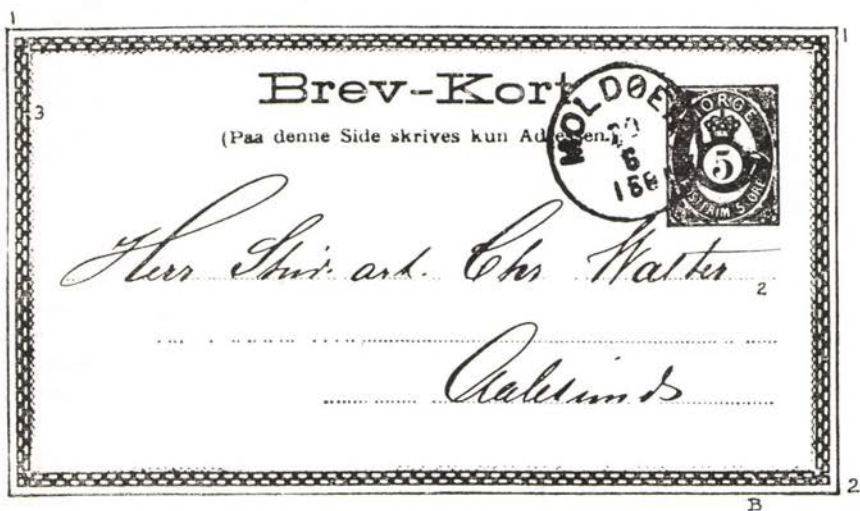 1 1
Brev-Kort
3
(Paa denne Side skrives kun Adressen.)
MOLDØEN
6
NORGE
5
FRIM 5 ØRE
Herr Stud. art. Chr Walter
2
Aalesund
2
B